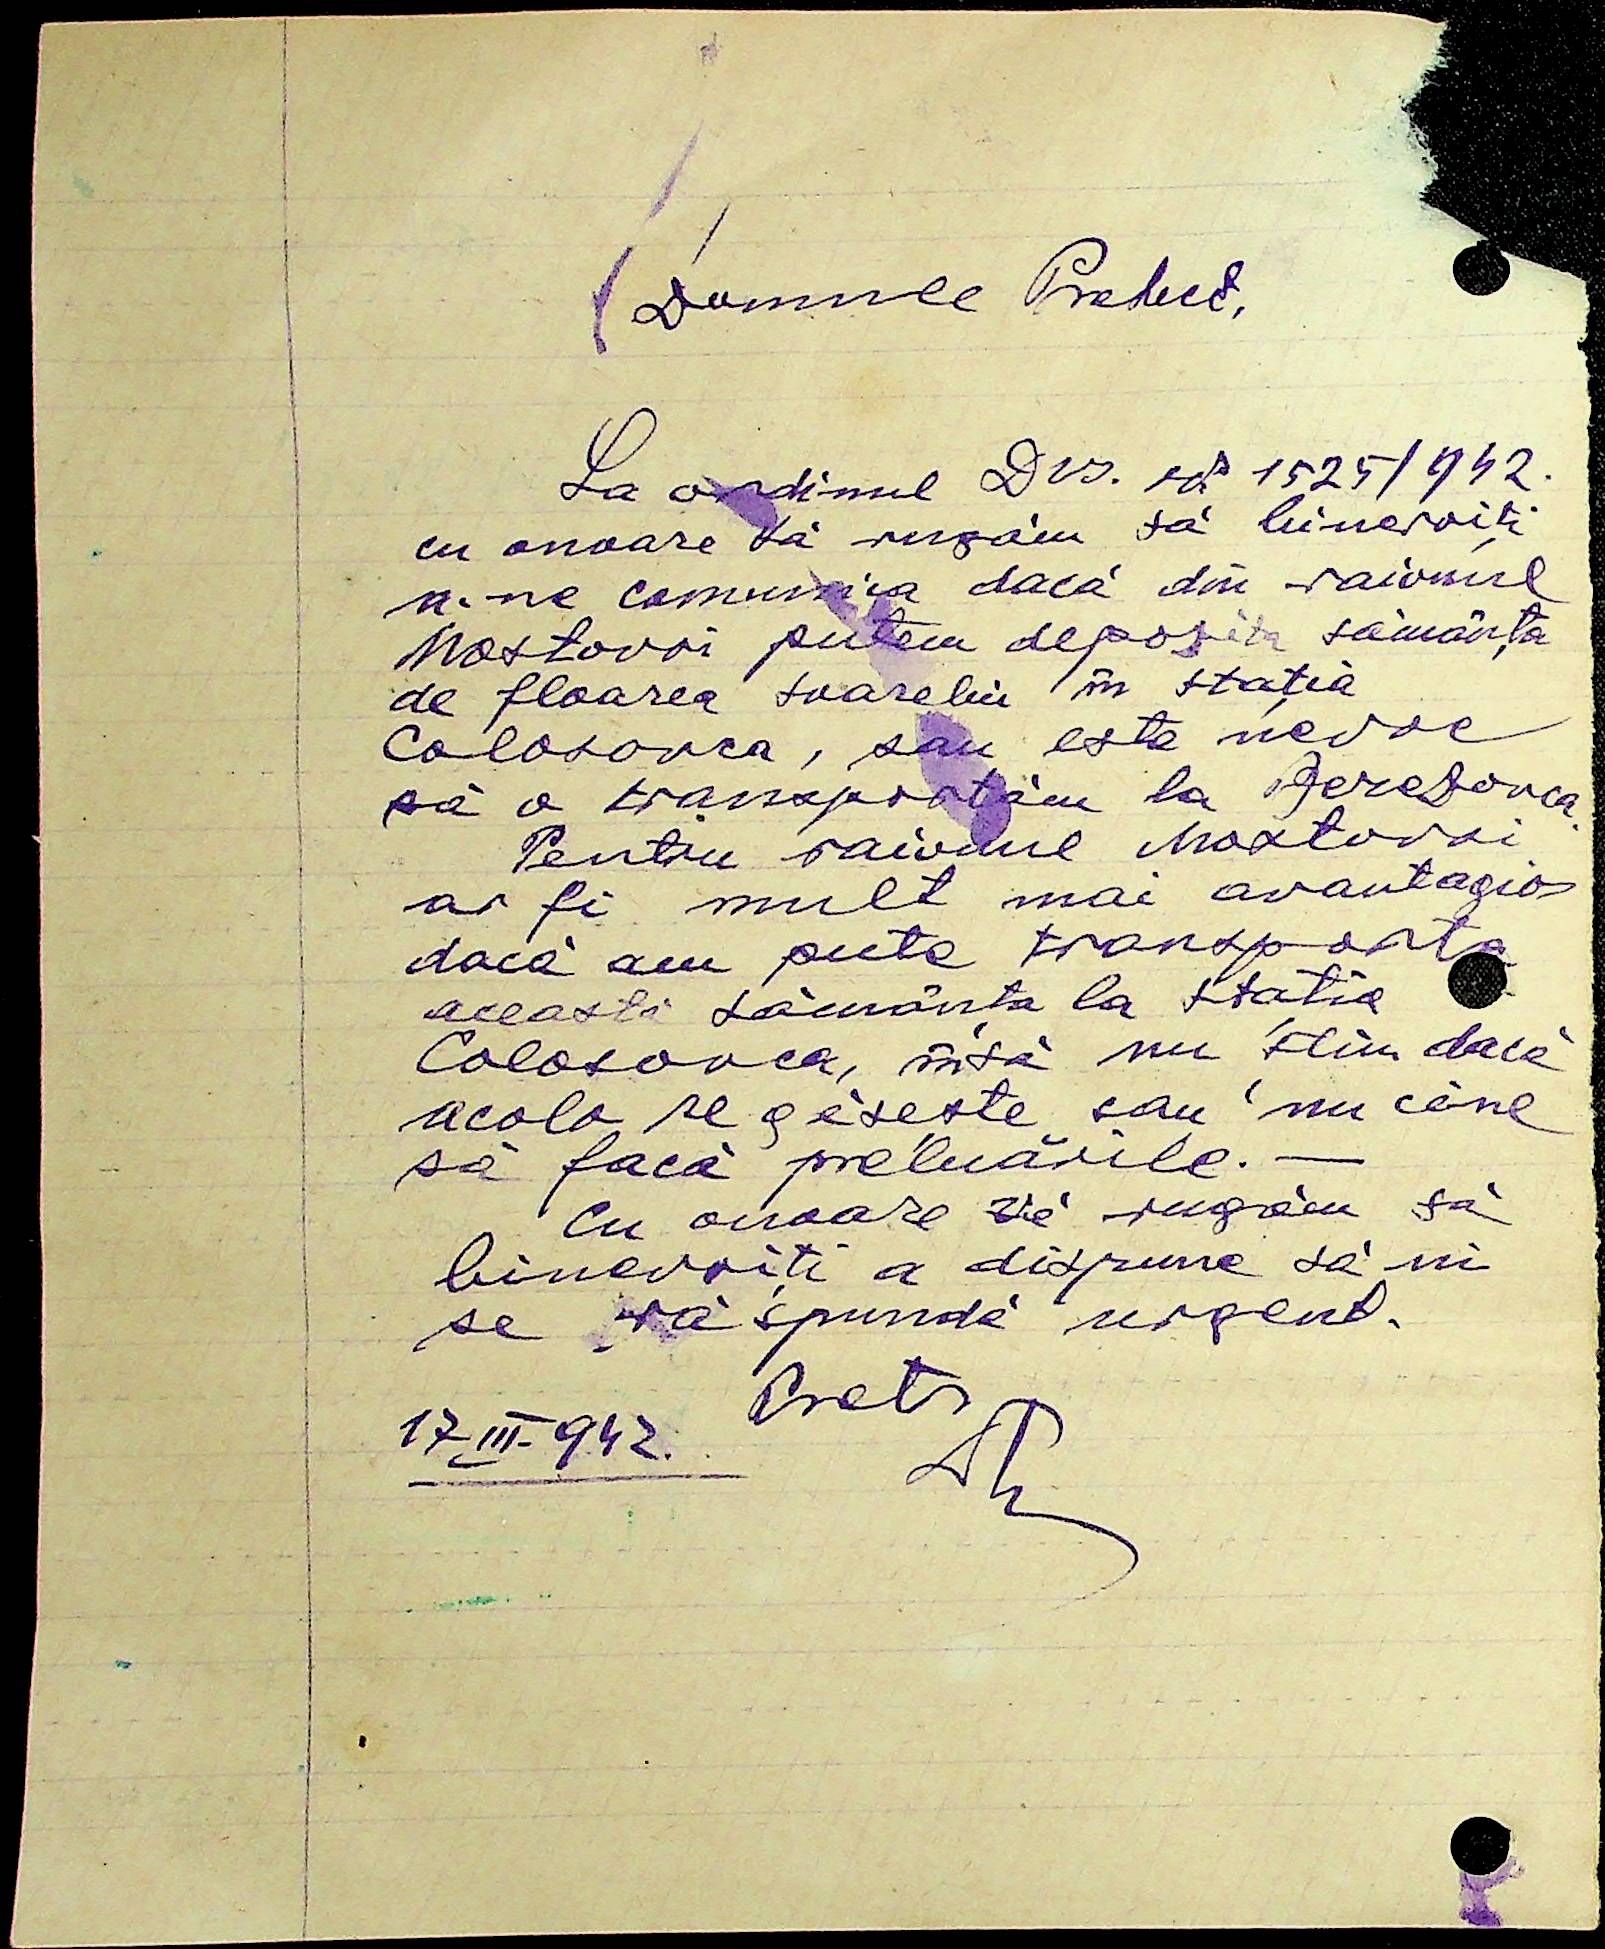 Domnule Prefect,
La ordinul Dvs. No 1525/942.
cu onoare vă rugăm să binevoiți
a-ne comunica dacă din raionul
Mostovoi putem depozita sămânța
de floarea soarelui în stația
Colosovca, sau este nevoe
să o transportăm la Berezovca.
Pentru raionul Mostovoi
ar fi mult mai avantagios
dacă am pute transporta
această sămânța la stația
Colosovca, însă nu știm dacă
acolo se găsește sau nu cine
să facă preluările. —
Cu onoare vă rugăm să
binevoiți a dispune să ni
se răspundă urgent.
Pretor
17-III-942.